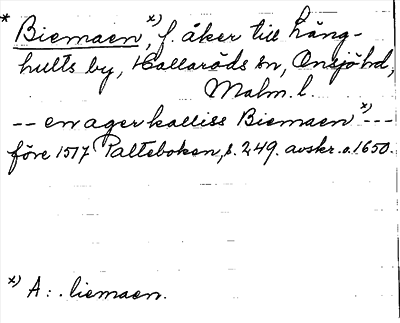 * Biemaen, x) f. åker till Häng-
hults by, Hallaröds sn, Onsjöhd,
Malm. l.
-- en ager kalliss Biemaen x) ---
före 1517 Palteboken, s. 249. avskr. o. 1650.
x) A: . liemaen.